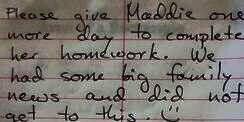 Please give Maddie one
more day to complete
her homework. We
had some big family
news and did not
get to this. :)